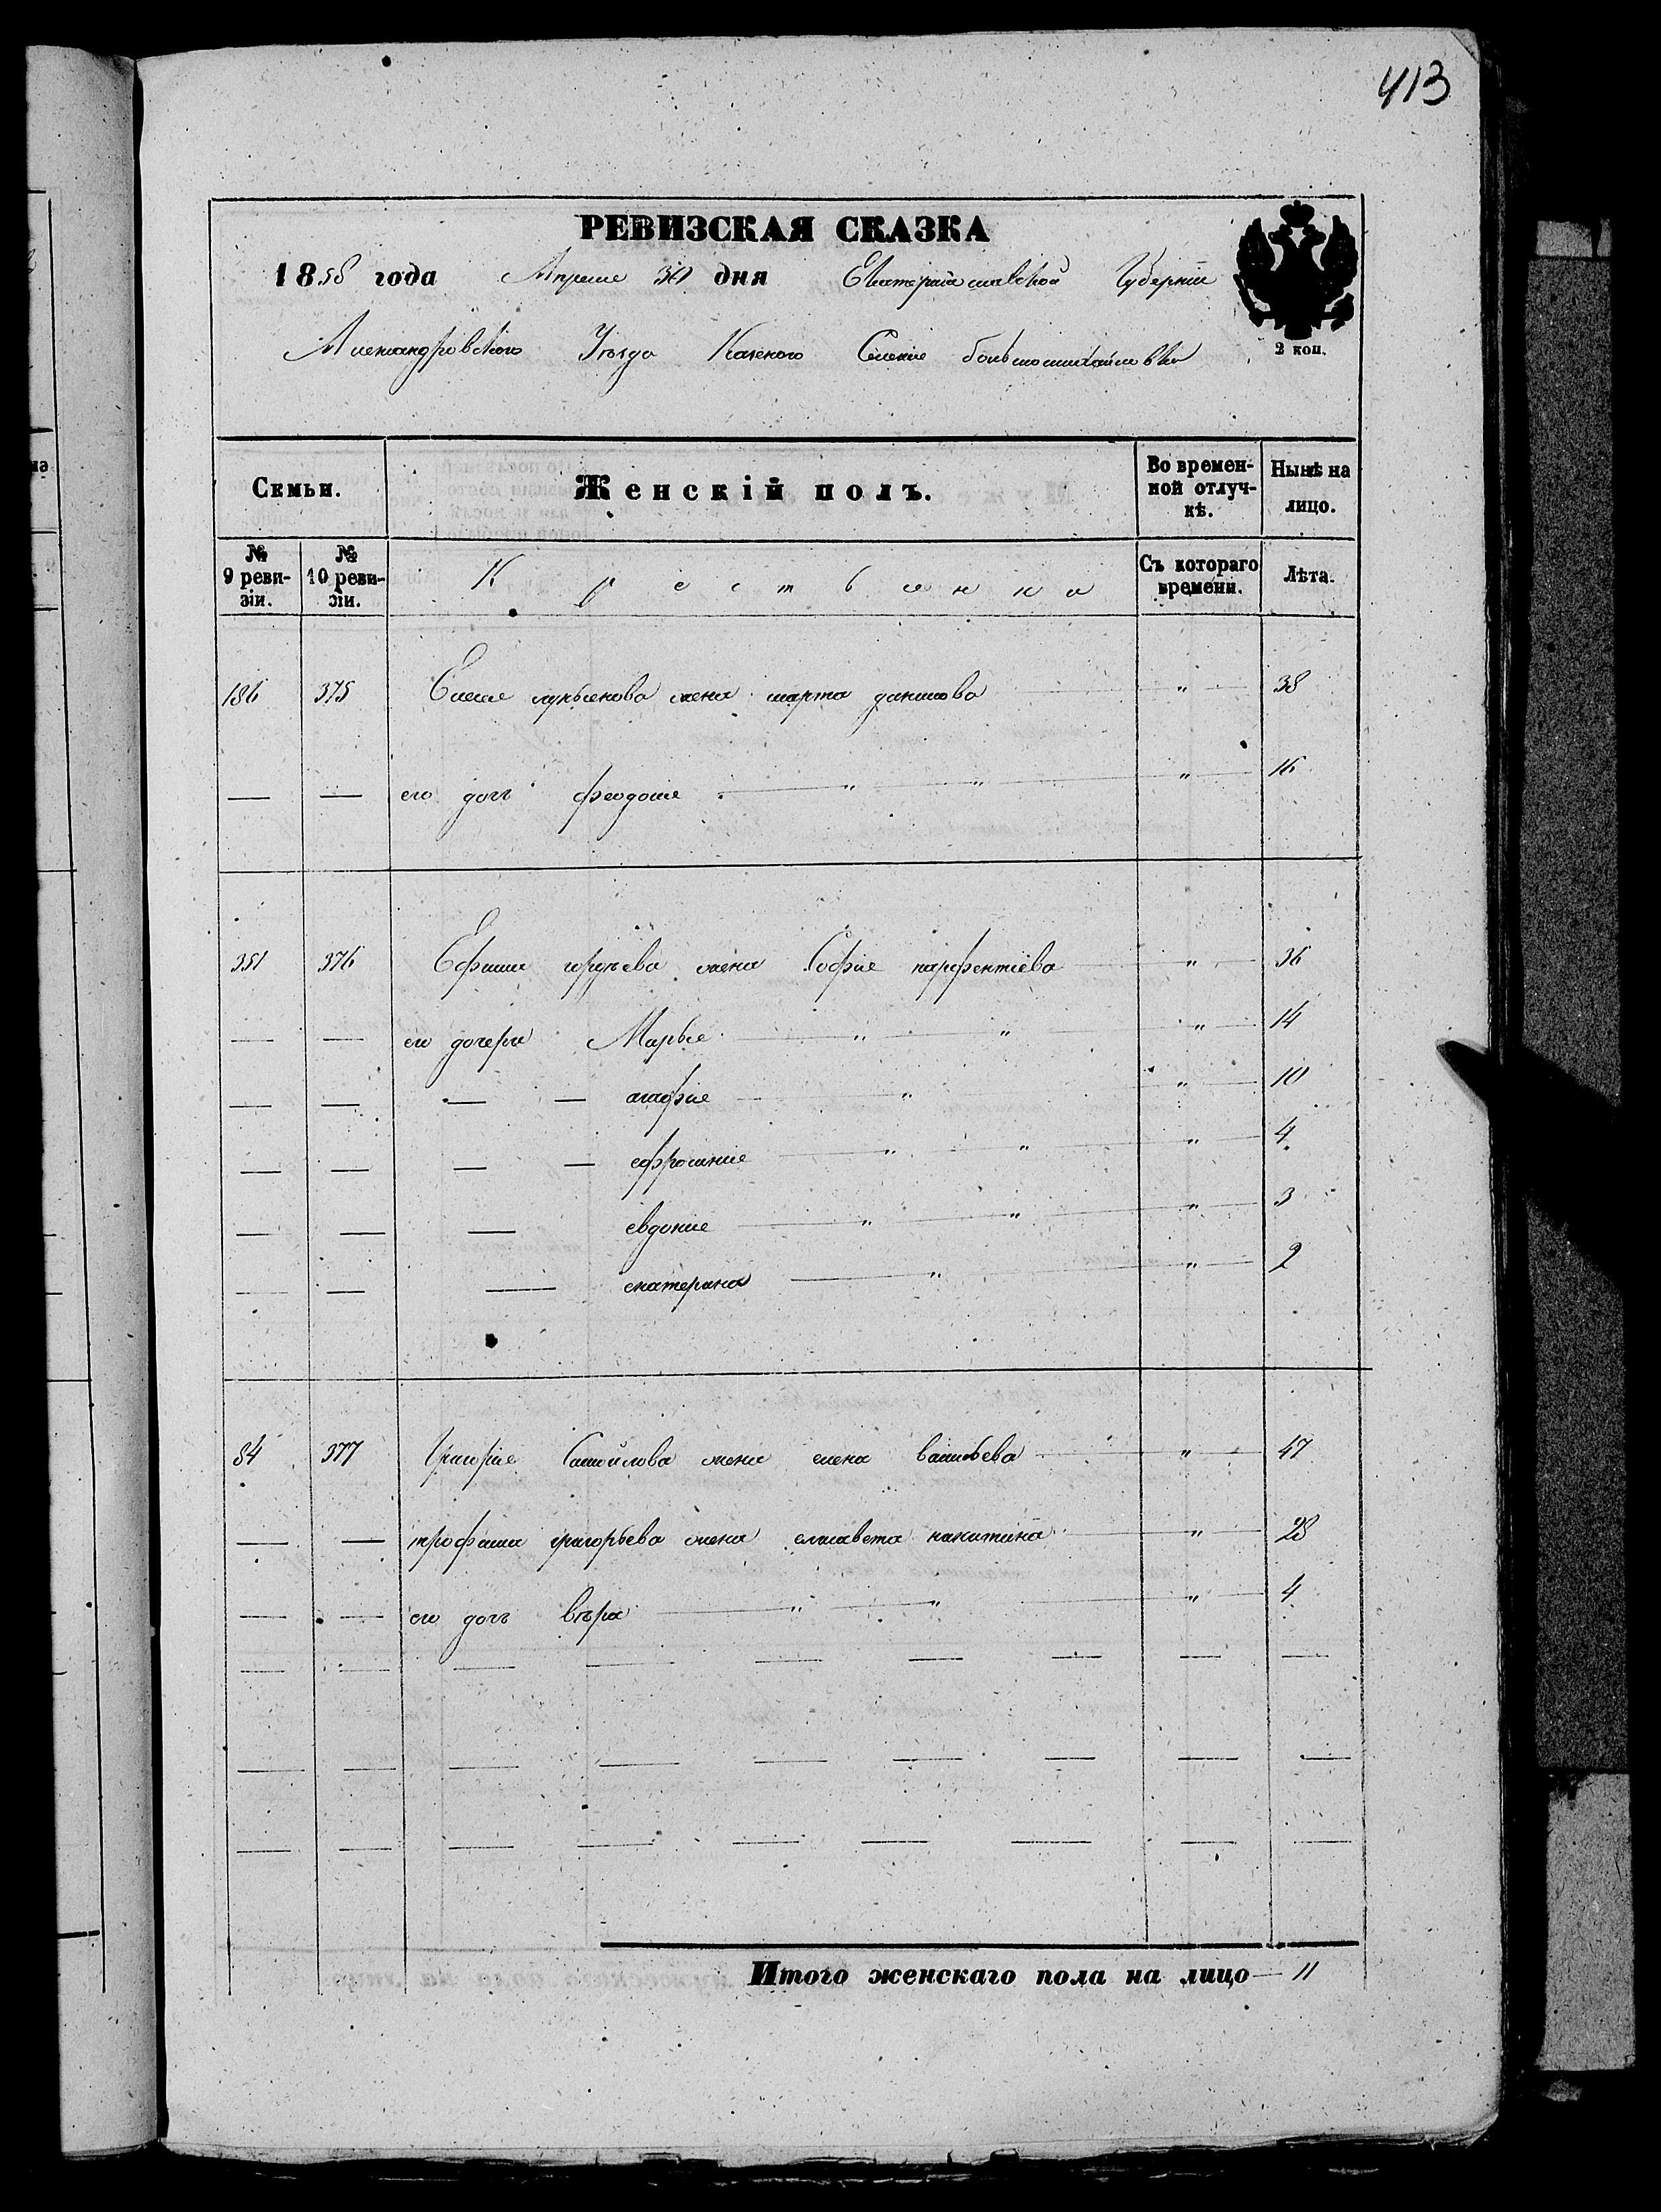 413
РЕВИЗСКАЯ СКАЗКА
1858 года Апреля 30 дня Екатеринославской Губернии
Александровского Уѣзда Казеного Селенie больмошихайловки
2 коп.
Семьи.
Женскій полъ.
Во временной отлучкѣ.
Нынѣ на лицо.
№ 9 ревизіи.
№ 10 ревизіи.
Съ котораго времени.
Лѣта.
186 375 жена марта данилова " 38
— — его дочъ феодосия " " " 16
351 376 Ефима гордѣева жена Софие парфентиева " 36
— — его дочери Марья " " " 14
— — — — агафие " " 10
— — — — ефросиние " " " 4
— — — евдокие " " " 3
— — — екатерина " " 2
84 377 Григорие Самойлова жена елена васильева " 47
— — трофима григорьева жена елисавета никитина " 28
— — его дочъ вѣра " " " 4
Итого женскаго пола на лицо — 11